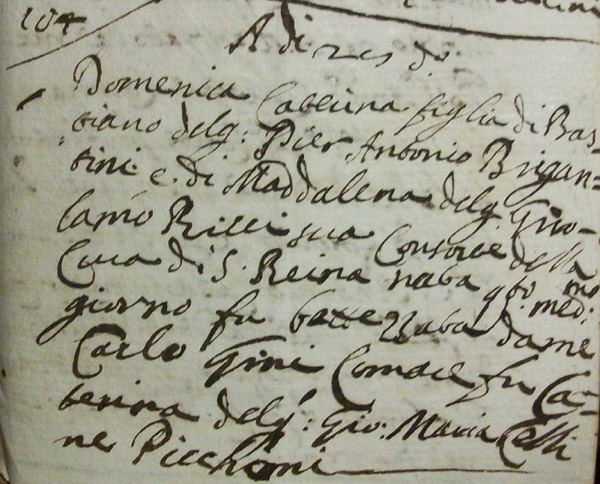 104
A di 25 d:
Domenica Caterina figlia di Bas-
tiano del q: Pier Antonio Brigan-
tini e di Maddalena del q. Giro-
lamo Ricci sua Consorte della
Cura di S. Reina nata q.to med:mo
giorno fu battezzata da me
Carlo Gini Comare fu Ca-
terina del q: Gio: Maria Celli
ne Picchini